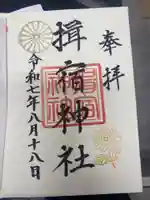 奉拝
揖宿神社
令和七年八月十八日